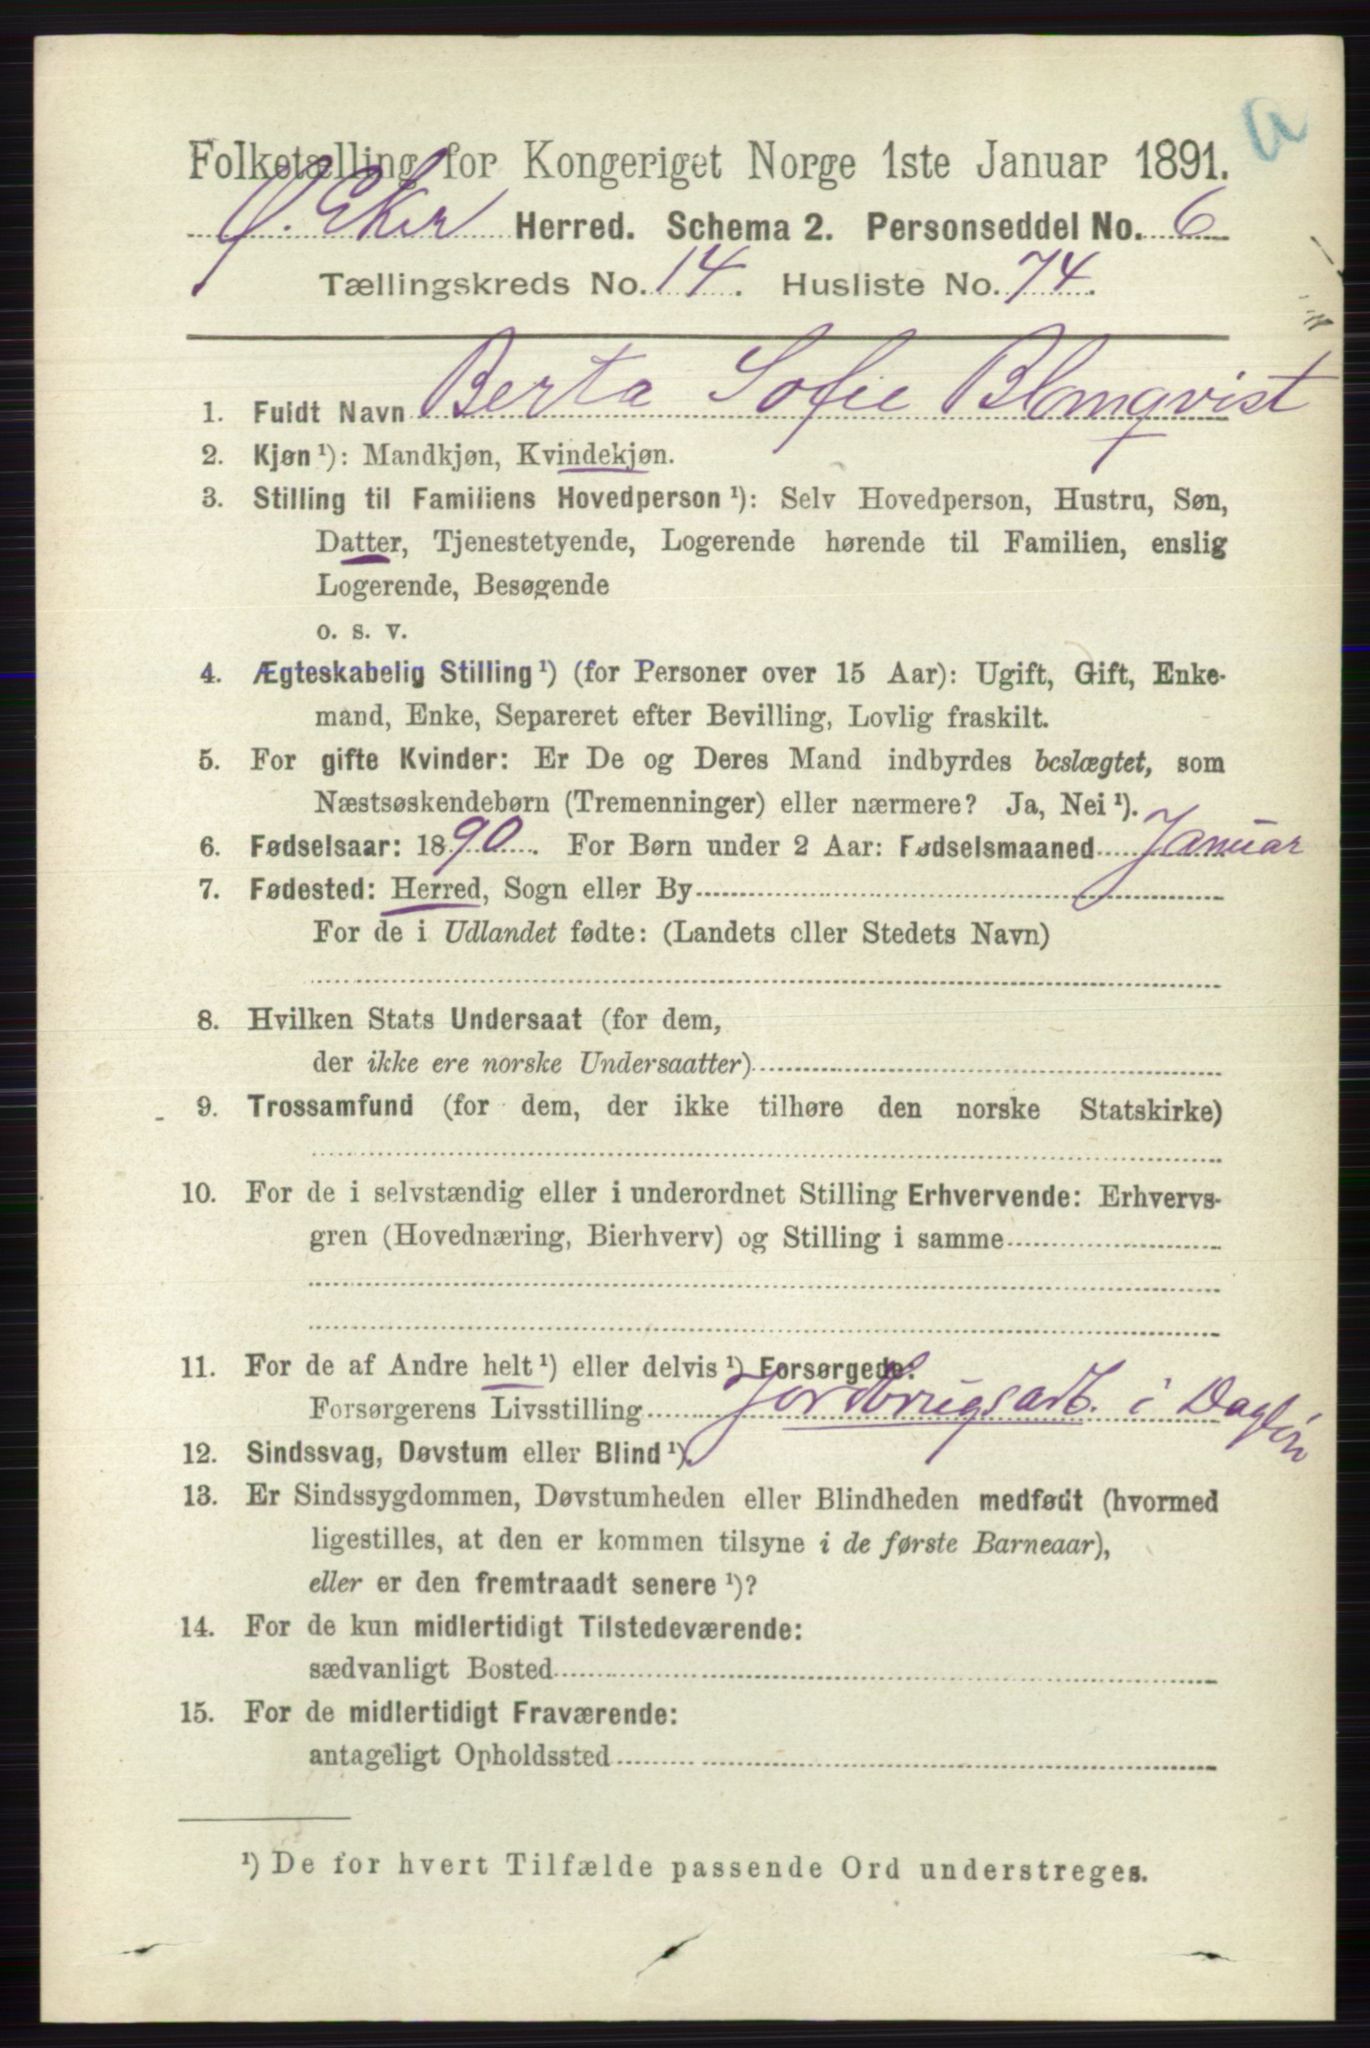 a
Folketælling for Kongeriget Norge 1ste Januar 1891.
Ø. Eker Herred. Schema 2. Personseddel No. 6
Tællingskreds No. 14. Husliste No. 74.
1. Fuldt Navn Berta Sofie Blomqvist
2. Kjøn ¹): Mandkjøn, Kvindekjøn.
3. Stilling til Familiens Hovedperson ¹): Selv Hovedperson, Hustru, Søn,
Datter, Tjenestetyende, Logerende hørende til Familien, enslig
Logerende, Besøgende
o. s. v.
4. Ægteskabelig Stilling ¹) (for Personer over 15 Aar): Ugift, Gift, Enke-
mand, Enke, Separeret efter Bevilling, Lovlig fraskilt.
5. For gifte Kvinder: Er De og Deres Mand indbyrdes beslægtet, som
Næstsøskendebørn (Tremenninger) eller nærmere? Ja, Nei ¹).
6. Fødselsaar: 1890. For Børn under 2 Aar: Fødselsmaaned Januar
7. Fødested: Herred, Sogn eller By
For de i Udlandet fødte: (Landets eller Stedets Navn)
8. Hvilken Stats Undersaat (for dem,
der ikke ere norske Undersaatter)
9. Trossamfund (for dem, der ikke tilhøre den norske Statskirke)
10. For de i selvstændig eller i underordnet Stilling Erhvervende: Erhvervs-
gren (Hovednæring, Bierhverv) og Stilling i samme
11. For de af Andre helt ¹) eller delvis ¹) Forsørgede:
Forsørgerens Livsstilling Jordbrugsarb. i Dagløn
12. Sindssvag, Døvstum eller Blind ¹).
13. Er Sindssygdommen, Døvstumheden eller Blindheden medfødt (hvormed
ligestilles, at den er kommen tilsyne i de første Barneaar),
eller er den fremtraadt senere ¹)?
14. For de kun midlertidigt Tilstedeværende:
sædvanligt Bosted
15. For de midlertidigt Fraværende:
antageligt Opholdssted
¹) De for hvert Tilfælde passende Ord understreges.